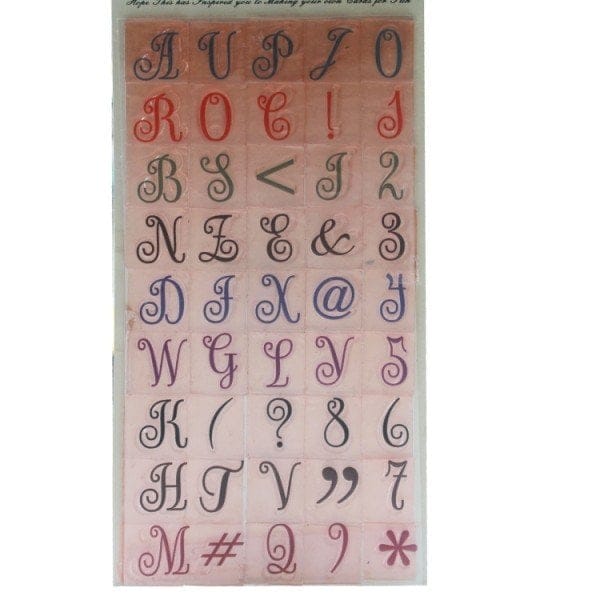 Hope This has Inspired you to Making your own Cards for Fun
A U P J 0
R O C ! 1
B S < I 2
N Z E & 3
D F X @ 4
W G L Y 5
K ( ? 8 6
H T V ” 7
M # Q 9 *